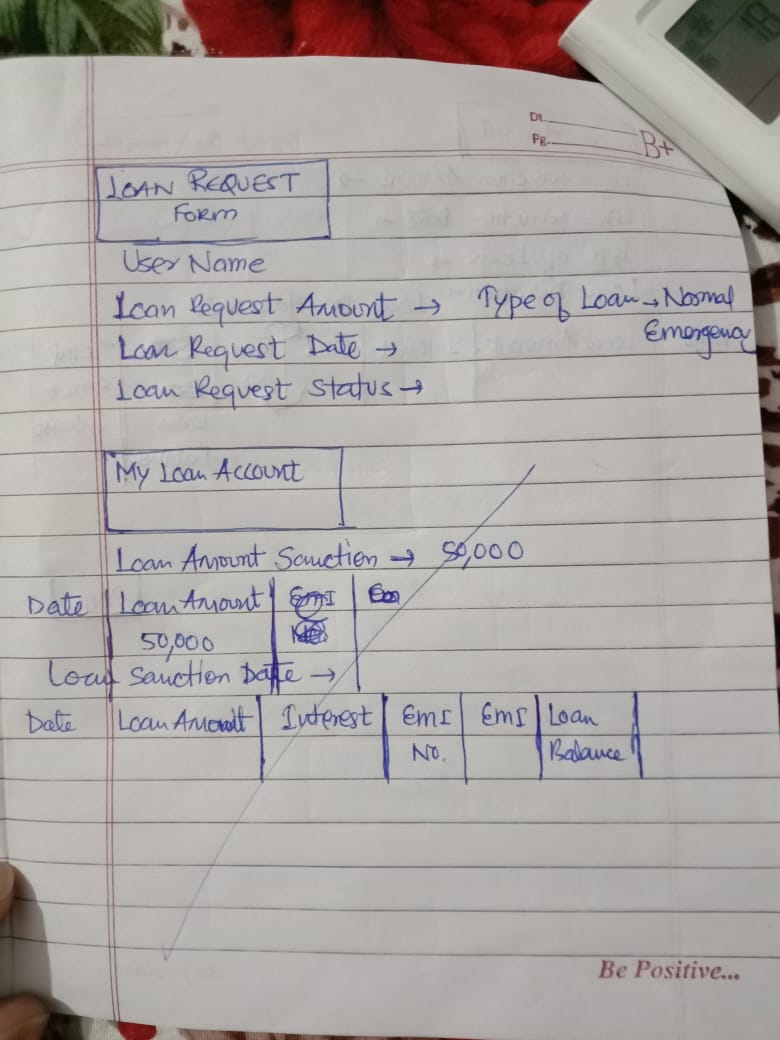 Dt.
Pg.
B+
LOAN REQUEST
FORM
User Name
Loan Request Amount → Type of Loan → Normal
Emergency
Loan Request Date →
Loan Request Status →
My Loan Account
Loan Amount Sanction → 50,000
Date Loan Amount EMI
50,000
Loan Sanction Date →
Date Loan Amount Interest EMI EMI Loan
No. Balance
Be Positive...